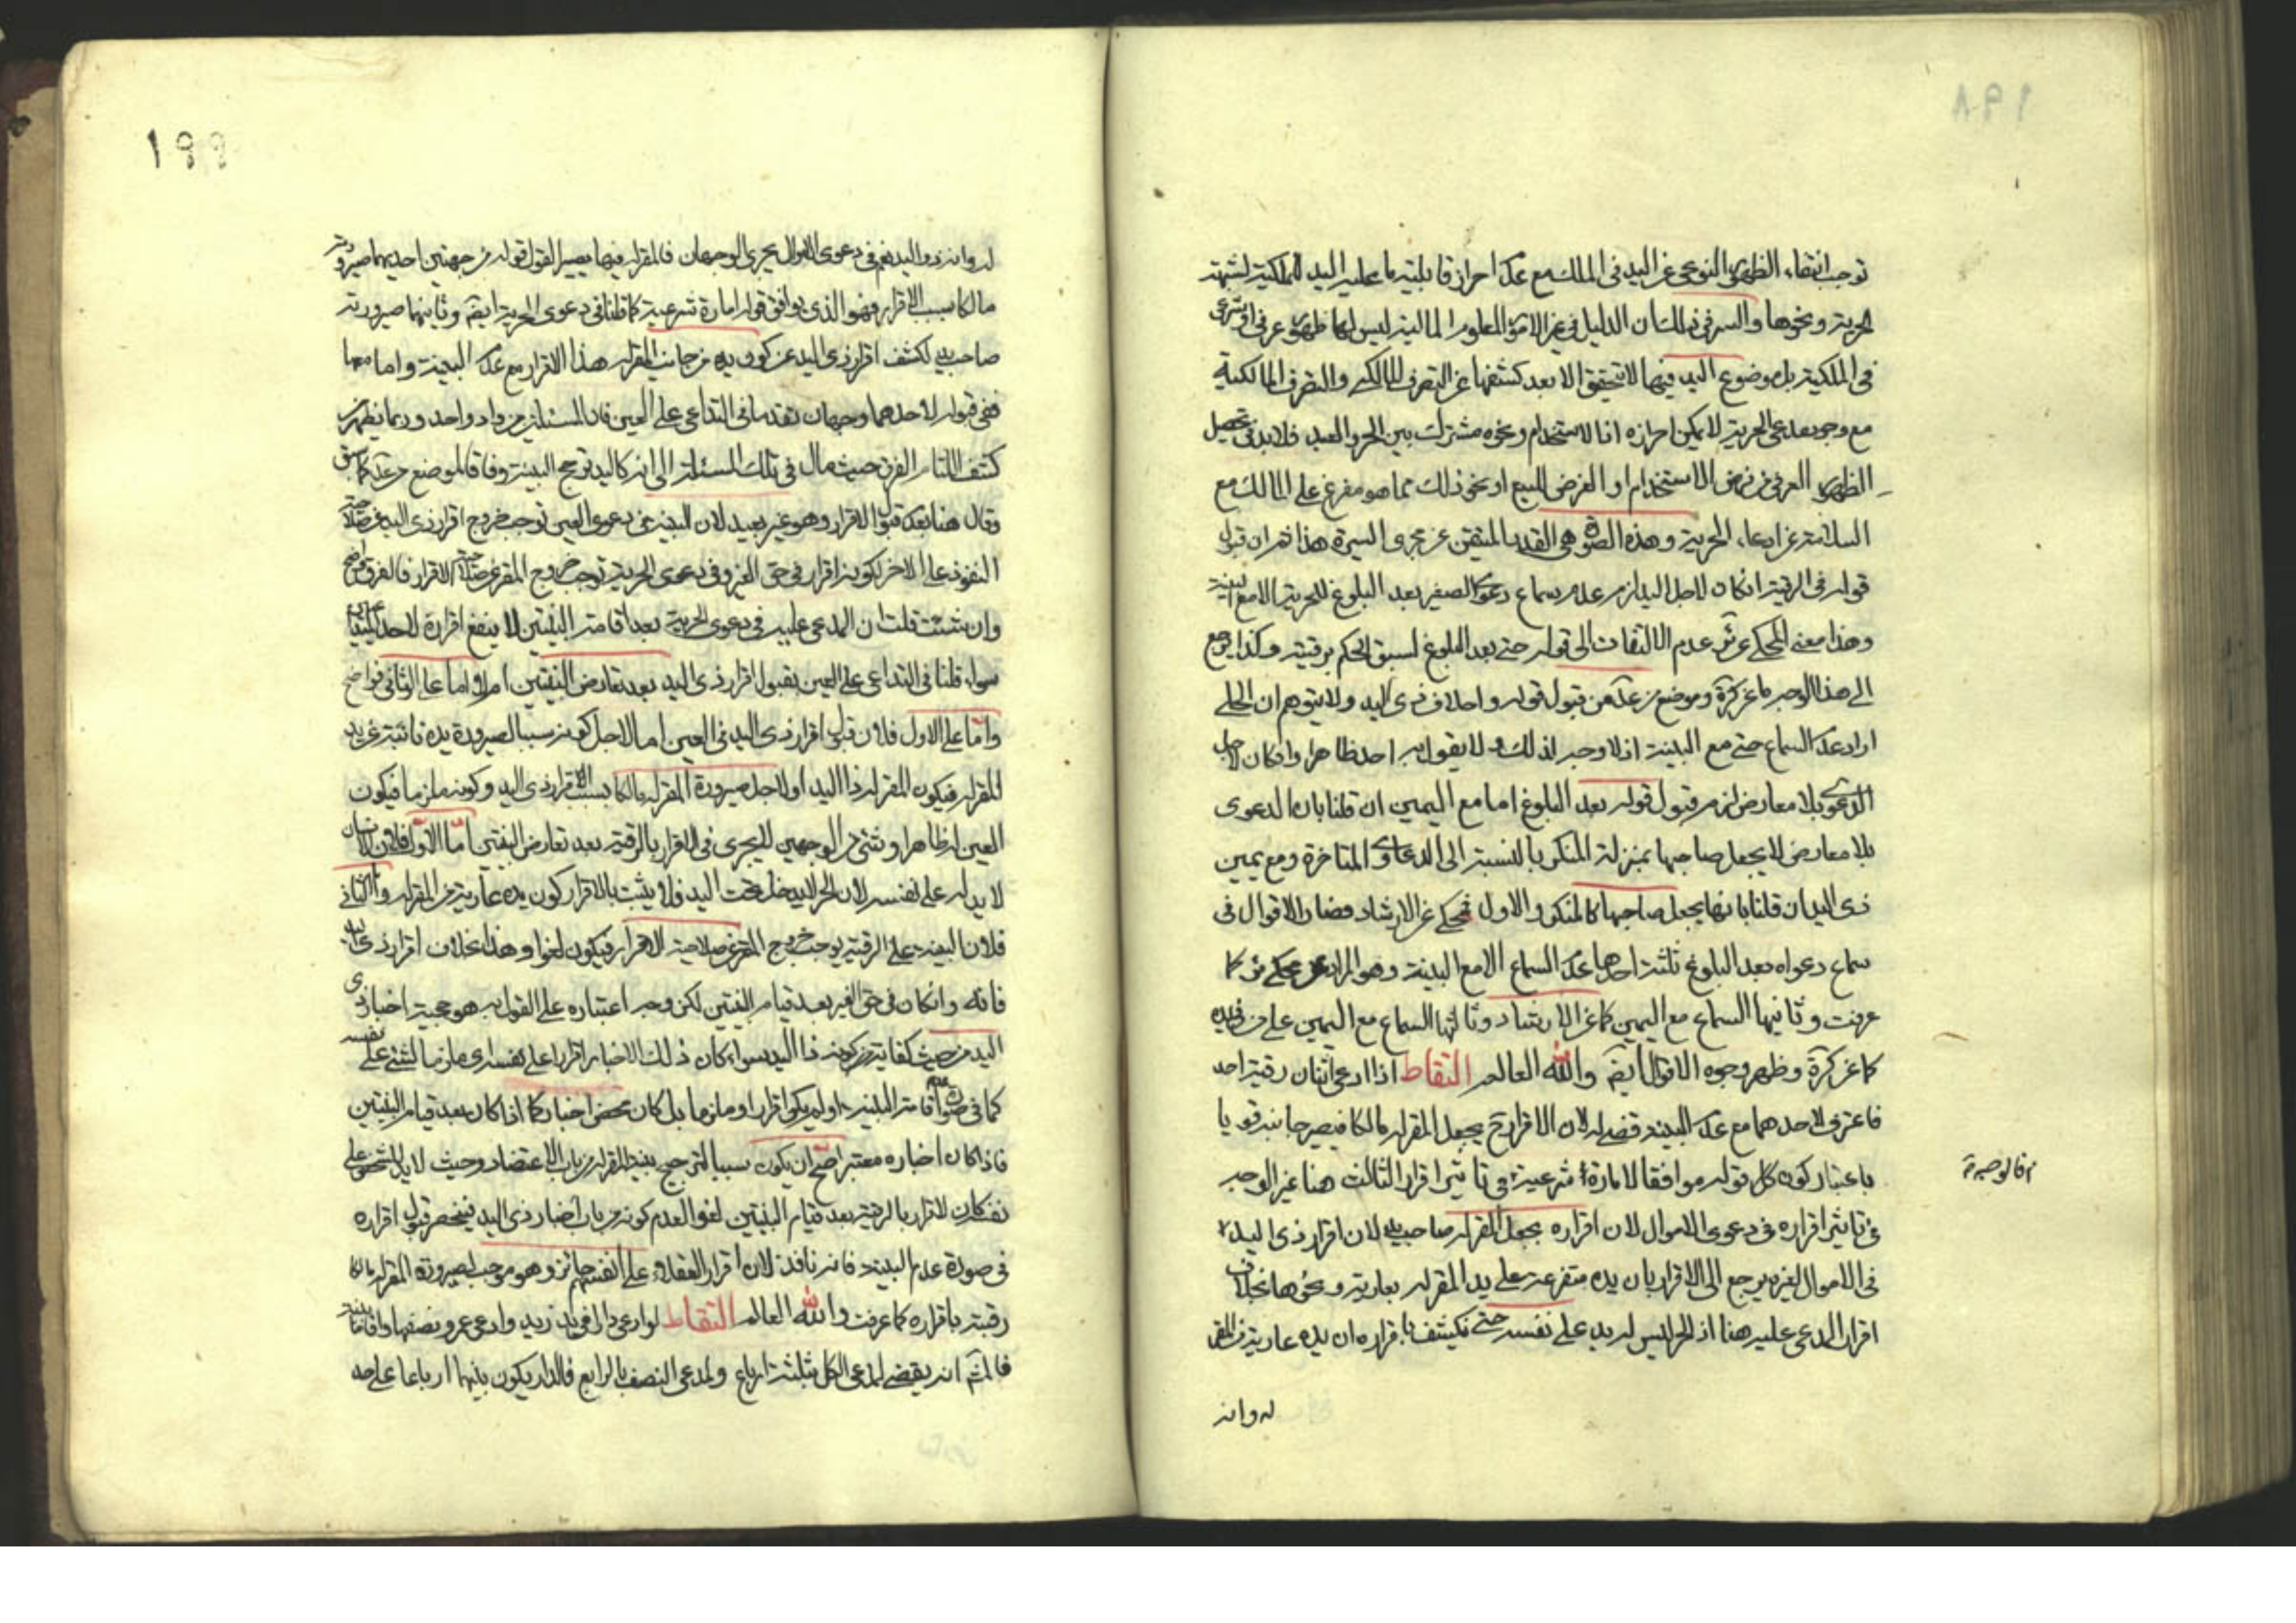 ١٩٨
توجب انتفاء الظهور النوعى عن اليد فى الملك مع عدم احراز قابلية ما عليه اليد للملكية لشبهة
الحرية ونحوها والسر فى ذلك ان الدليل فى غير الامور المعلوم المالية ليس لها ظهور عرفى او شرعى
فى الملكية بل موضوع اليد فيها لا يتحقق الا بعد كشفها عن التصرف المالكى والتصرف المالكية
مع وجود مدعى الحرية لا يمكن احرازه اذا الاستخدام ونحوه مشترك بين الحر والعبد فلابد فى تحصيل
الظهور العرفى من فرض الاستخدام او الغرض للبيع او نحو ذلك مما هو مفرع على المالك مع
السلامة عن ادعاء الحرية وهذه الصورة هى القدر المتيقن عن مجرى السيرة هذا ثم ان قبول
قوله فى الرقية ان كان لاجل اليد لزم عدم سماع دعوى الصغير بعد البلوغ للحرية الا مع البينة
وهذا معنى المحكى عن عدم الالتفات الى قوله حتى بعد البلوغ لسبق الحكم برقيته وكذا يرجع
الى هذا الوجه ما عن كرة وموضع من عد من قبول قوله واحلاف ذى اليد ولا يتوهم ان الحلى
اراد عدم السماع حتى مع البينة اذ لا وجه لذلك ولا يقول به احد ظاهرا وان كان لاجل
الدعوى بلا معارض لزم قبول قوله بعد البلوغ اما مع اليمين ان قلنا بان الدعوى
بلا معارض لا يجعل صاحبها بمنزلة المنكر بالنسبة الى الدعاوى المتاخرة ومع يمين
ذى اليد ان قلنا بانها يجعل صاحبها كالمنكر والاول محكى عن الارشاد فصار الاقوال فى
سماع دعواه بعد البلوغ ثلثة احدها عدم السماع الا مع البينة وهو المراد عن محكى كما
عرفت وثانيها السماع مع اليمين كما عن الارشاد وثالثها السماع مع اليمين على من فى يده
كما عن كرة وظهر وجوه الاقوال ايضا والله العالم التقاط اذا ادعى اثنان رقية احد
فاعترف لاحدهما مع عدم البينة قضى له لان الاقرار ح يجعل المقر له مالكا فيصير جانبه قويا
باعتبار كون كل قوله موافقا لامارة شرعية فى تاثير اقرار الثالث هنا غير الوجه
فى تاثير اقراره فى دعوى الاموال لان اقراره يجعل المقر له صاحب يد لان اقرار ذى اليد
فى الاموال لغيره يرجع الى الاقرار بان يده متفرعة على يد المقر له بعارية ونحوها بخلاف
اقرار المدعى عليه هنا اذ الحر ليس له يد على نفسه حتى يكشف باقراره ان يده عارية من المقر
فالوجه
له وانه
١٩٩
له وانه ذو اليد نعم فى دعوى الاموال يجرى الوجهان فالمقر له فيها يصير القول قوله من جهتين احديهما صيرورته
مالكا بسبب الاقرار فهو الذى يوافق قوله امارة شرعية كما قلنا فى دعوى الحرية ايضا وثانيهما صيرورته
صاحب يد لكشف اقرار ذى اليد عن كون يده من جانب المقر له هذا الاقرار مع عدم البينة واما معها
ففى قبوله لاحدهما وجهان تقدما فى التداعى على العين فان المسئلتين من واد واحد وربما يظهر من
كشف اللثام الفرق حيث مال فى تلك المسئلة الى انه كاليد ترجح البينة وفاقا لموضع من عد كما سبق
وقال هنا بعدم قبول الاقرار وهو غير بعيد لان البينة فى دعوى العين توجب خروج اقرار ذى اليد عن صلاحية
النفوذ على الاخر لكونه اقرار فى حق الغير وفى دعوى الحرية توجب خروج المقر عن صلاحية الاقرار فالفرق واضح
وان شئت قلت ان المدعى عليه فى دعوى الحرية بعد اقامة البينتين لا ينفع اقراره لاحد
سواء قلنا فى التداعى على العين بقبول اقرار ذى اليد بعد تعارض البينتين ام لا اما على الثانى فواضح
واما على الاول فلان قبول اقرار ذى اليد فى العين اما لاجل كونه سببا لصيرورة يده نائبة عن يد
المقر له فيكون المقر له ذا اليد او لاجل صيرورة المقر له مالكا بسبب اقرار ذى اليد وكونه ملزما فيكون
العين له ظاهرا وشئ من الوجهين لا يجرى فى الاقرار بالرقية بعد تعارض البينتين اما الاول فلان الانسان
لا يد له على نفسه لان الحر لا يدخل تحت اليد فلا يثبت بالاقرار كون يده عارية من المقر له واما الثانى
فلان البينة على الرقية يوجب خروج المقر عن صلاحية الاقرار فيكون لغوا وهذا بخلاف اقرار ذى اليد
فانه وان كان فى حق الغير بعد قيام البينتين لكن وجه اعتباره على القول به هو حجية اخبار ذى
اليد من حيث كفاية كونه ذا اليد سواء كان ذلك الاخبار اقرارا على نفسه اى ملزما لشئ على نفسه
كما فى صورة عدم اقامة البينة او لم يكن اقرارا وملزما بل كان محض اخبار كما اذا كان بعد قيام البينتين
فاذا كان اخباره معتبرا صح ان يكون سببا لترجيح بينة المقر له من باب الاعتضاد وحيث لا يد للشخص على
نفسه كان الاقرار بالرقية بعد قيام البينتين لغوا لعدم كونه من باب اخبار ذى اليد فينحصر قبول اقراره
فى صورة عدم البينة فانه نافذ لان اقرار العقلاء على انفسهم جائز وهو موجب لصيرورة المقر له مالكا
رقبته باقراره كما عرفت والله العالم التقاط لو ادعى دارا فى يد زيد وادعى عمرو نصفها واقاما بينة
فالمشهور انه يقضى لمدعى الكل بثلثة ارباع ولمدعى النصف بالرابع فالدار يكون بينهما ارباعا على حد